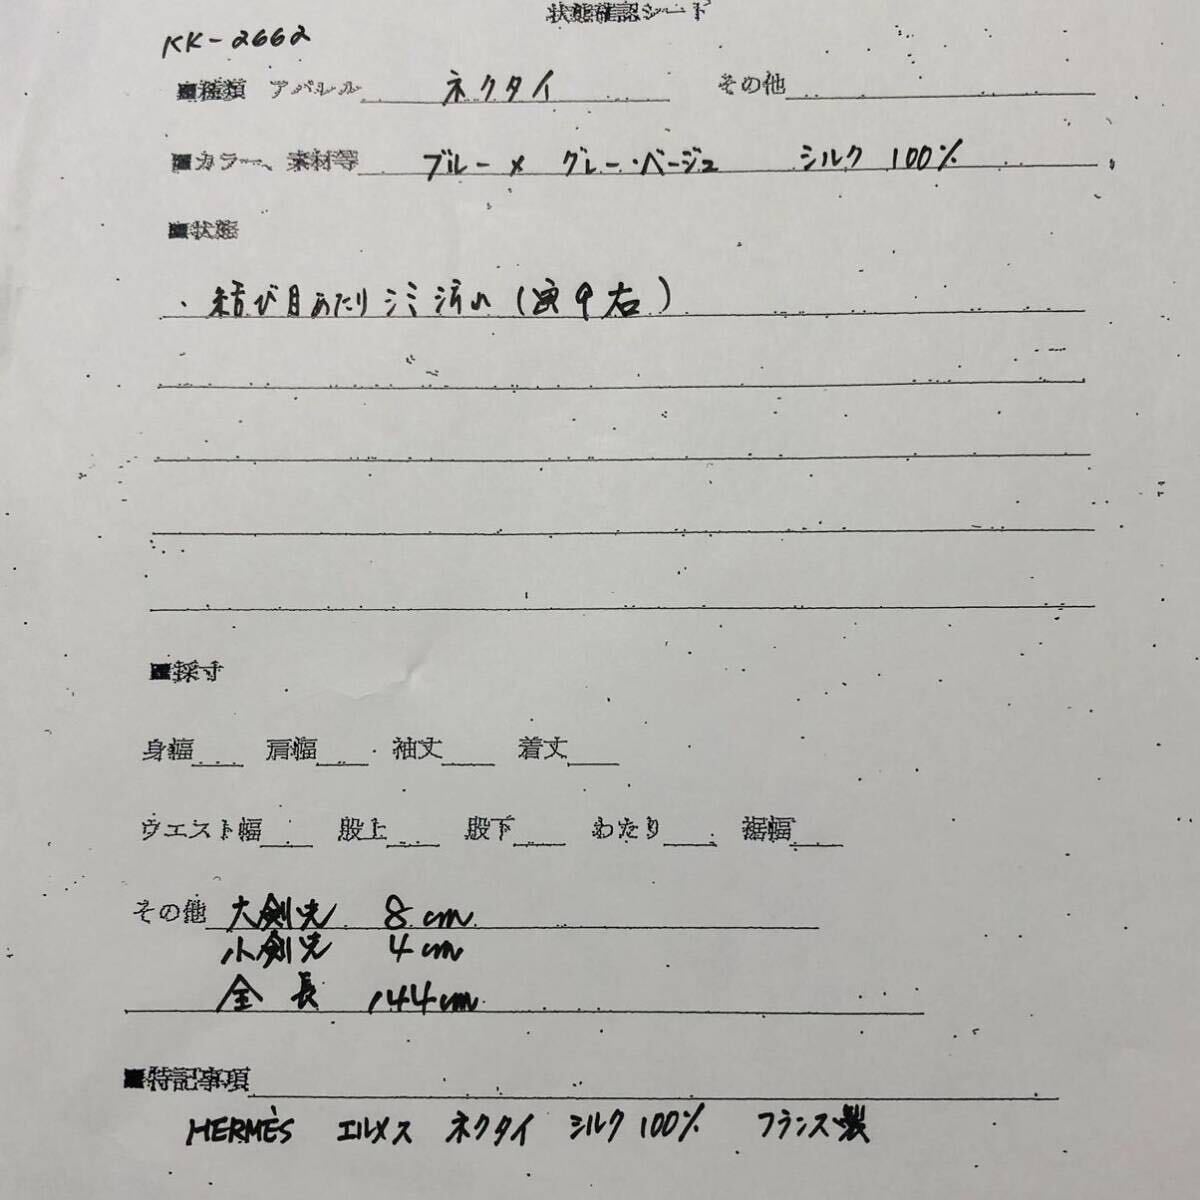 状態確認シート
KK-2662
■種類 アパレル ネクタイ その他
■カラー、素材等 ブルー × グレー・ベージュ シルク 100%
■状態
・結び目あたりシミ汚れ (
■採寸
身幅 肩幅 袖丈 着丈
ウエスト幅 股上 股下 わたり 裾幅
その他 大剣先 8cm
小剣先 4cm
全長 144cm
■特記事項
HERMÈS エルメス ネクタイ シルク100% フランス製